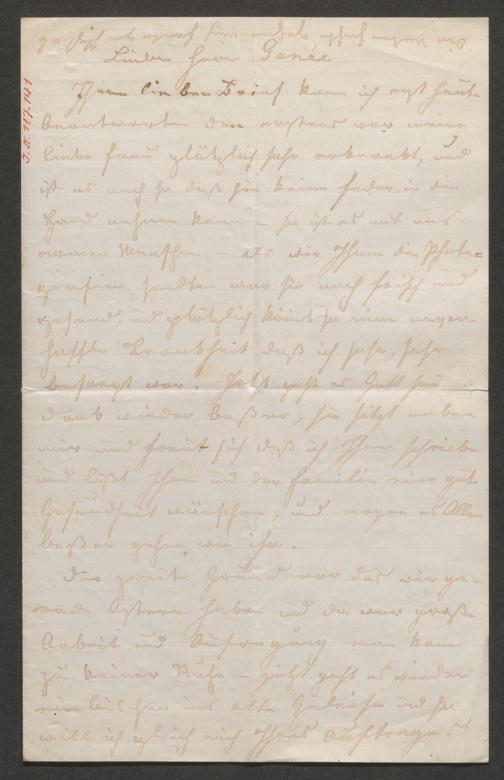 Lieber Herr Genée
Ihren lieben Brief kann ich erst heute
beantworten denn erstens war meine
liebe Frau plötzlich sehr erkrankt, und
ist es auch so daß sie keine Feder in die
Hand nehmen kann – so ist es mit uns
armen Menschen – als wir Ihnen die Photo=
grafien sandten war sie noch frisch und
gesund, und plötzlich kömt so eine
Krankheit daß ich sehr, sehr
besorgt war. Jetzt geht es Gott sei
Dank wieder beßer, sie sitzt neben
mir und freut sich daß ich Ihnen schreibe
und läßt Ihnen und der Familie eine gute
Gesundheit wünschen, und mögen es Allen
beßer gehen wie ihr.
Der zweite Grund war das wir ge-
rade Ostern haben und da war große
Arbeit und Aufregung man kam
zu keiner Ruhe – jetzt geht es wieder
ein bischen ins alte Geleise und so
will ich gleich mich Ihres Auftrages
J.N. 117.141